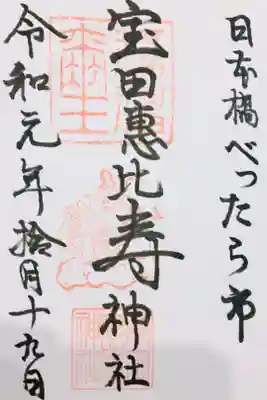 日本橋べったら市
宝田恵比寿神社
令和元年拾月十九日